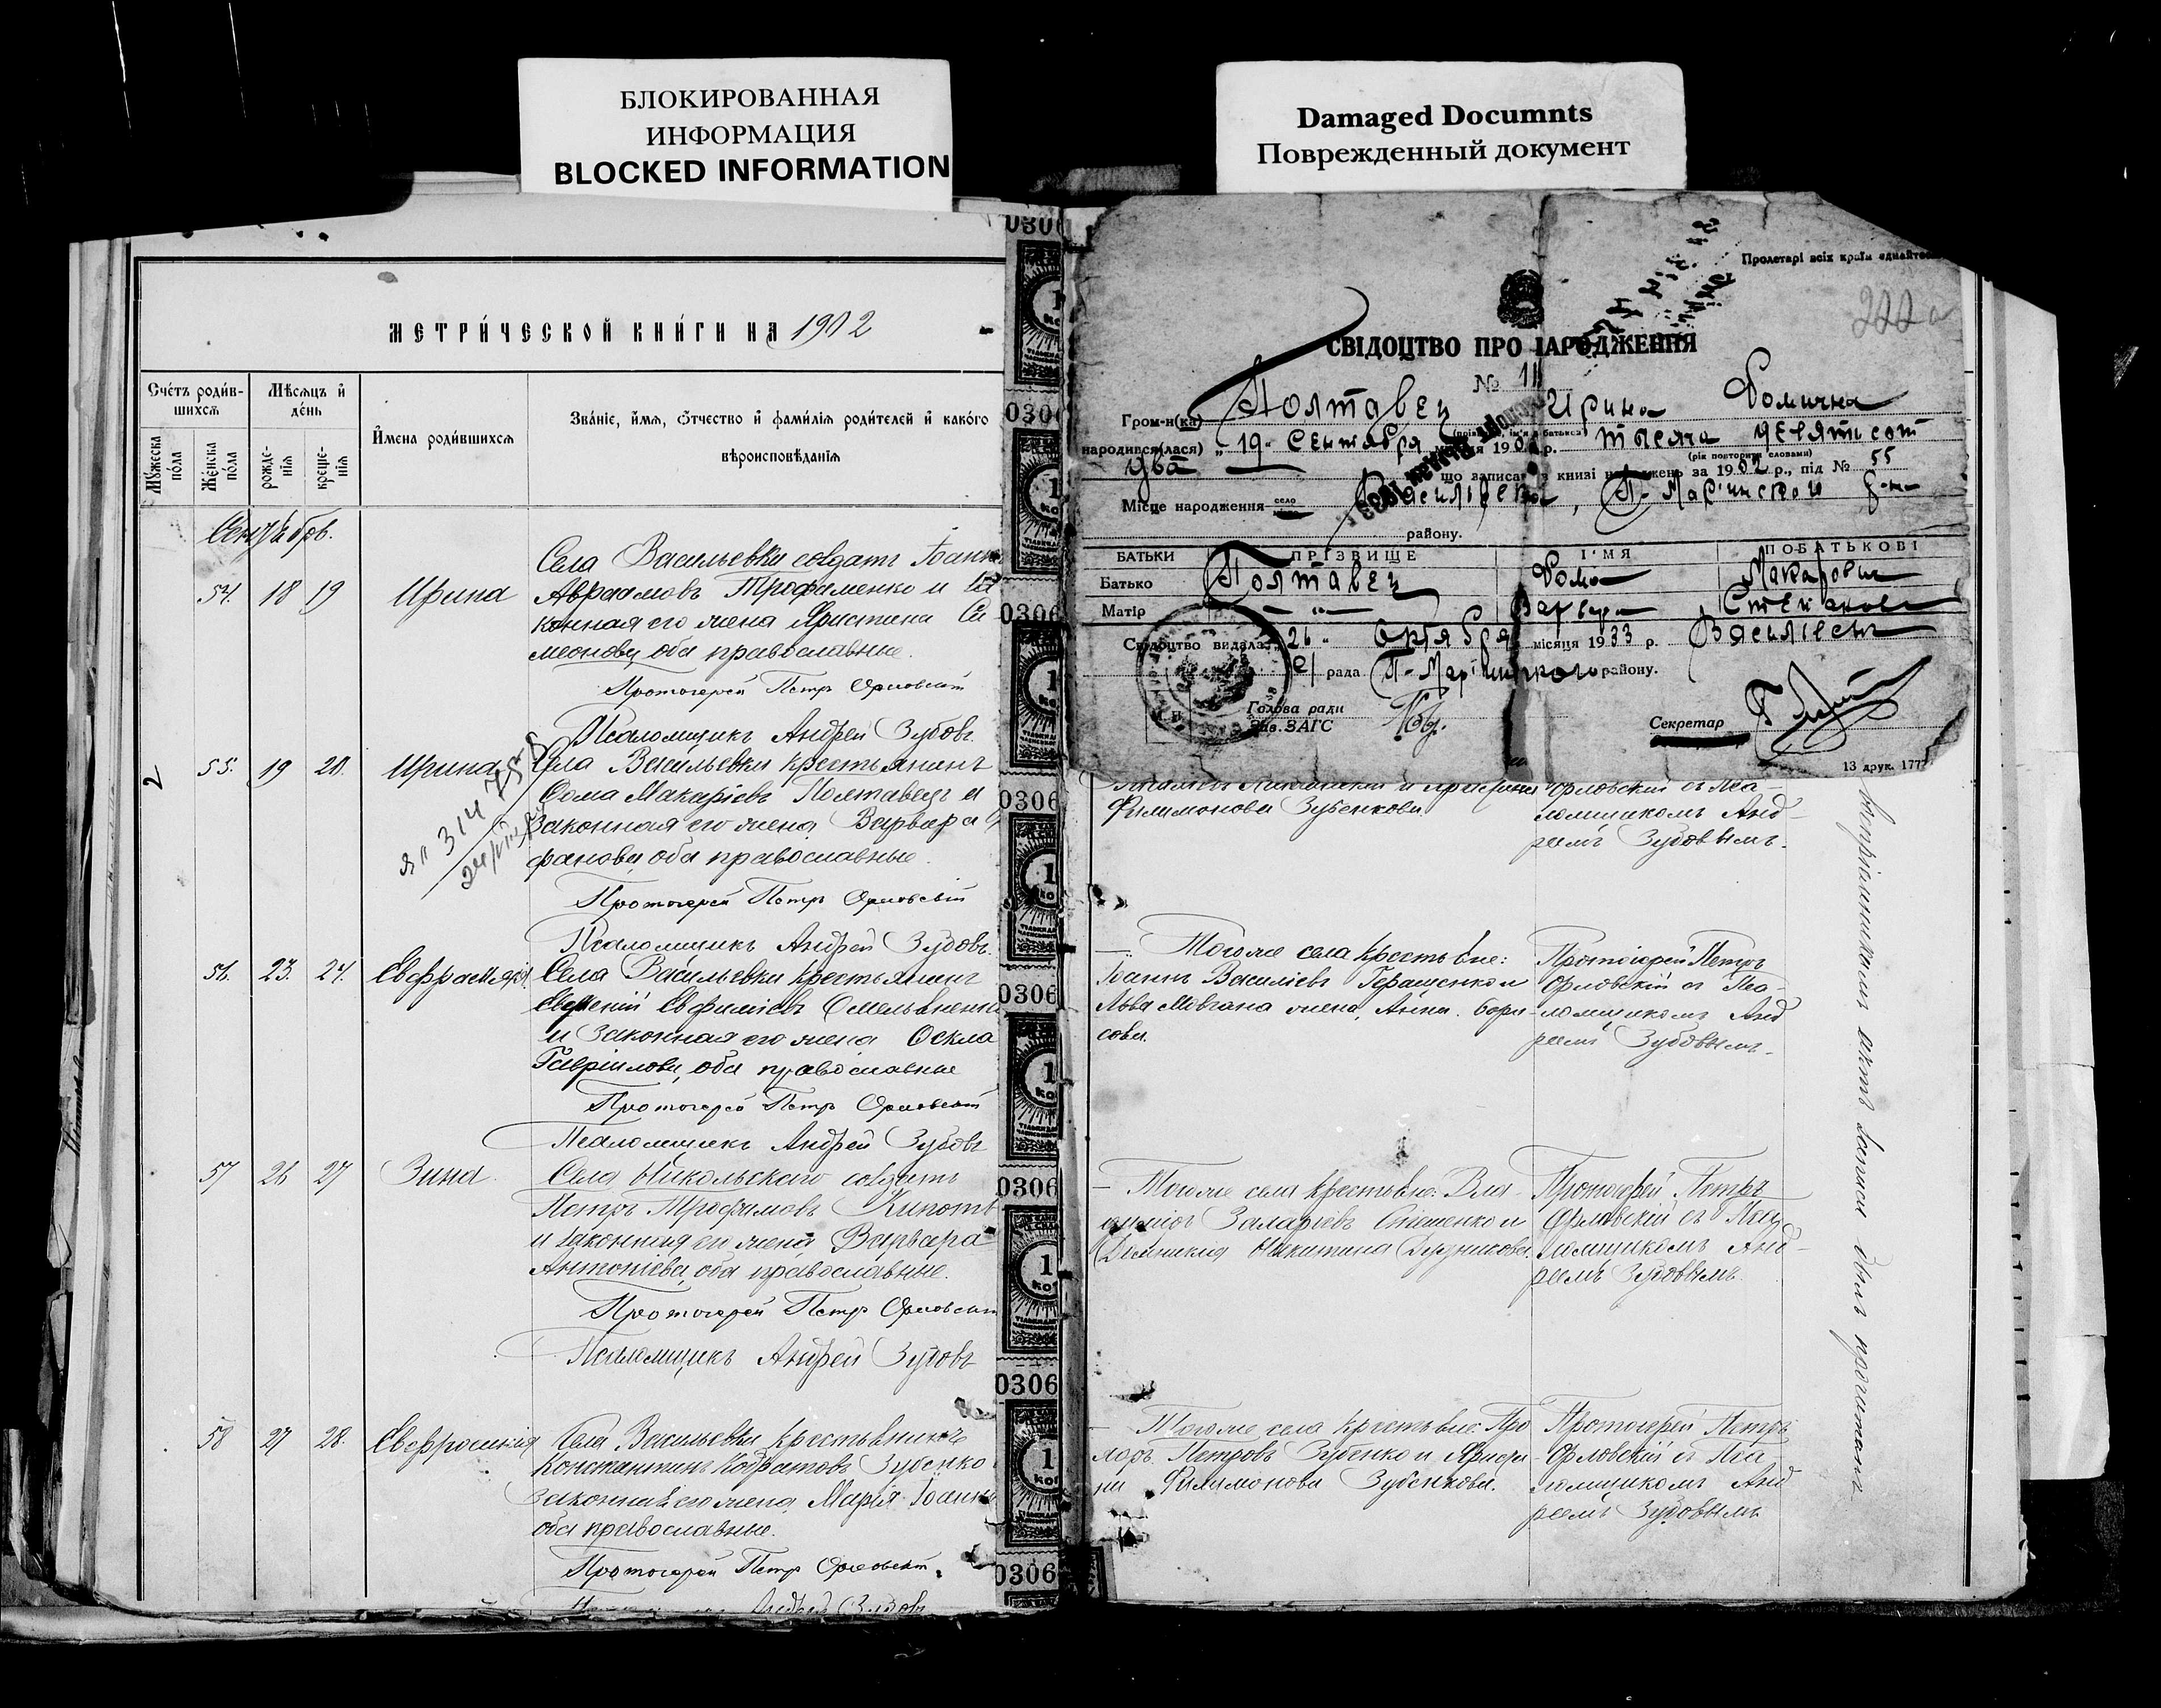 БЛОКИРОВАННАЯ
ИНФОРМАЦИЯ
BLOCKED INFORMATION
Damaged Documnts
Поврежденный документ
МЕТРИ́ЧЕСКОЙ КНИ́ГИ НА 1902
Сче́тъ роди́в-
шихсѧ
Мѣсѧцъ и҆
де́нь
И҆мена роди́вшихсѧ
Зва́нїе, и҆́мѧ, ѻ҆́тчество и҆ фами́лїѧ роди́телей и҆ како́гѡ
вѣроисповѣ́данїѧ
Мꙋ́жеска
по́ла
Же́нска
по́ла
рожде-
нїѧ
креще-
нїѧ
Сентябрь.
54. 18 19 Ирина
Села Васильевки солдатъ Іоаннъ
Авраамовъ Трофаменко и за
конная его жена Христина Си
меонова, оба православные.
Протоіерей Петръ Орловскій
Псаломщикъ Андрей Зубовъ.
2 55. 19 20. Ирина
Села Васильевки крестьянинъ
Ѳома Макаріевъ Полтавецъ и
законная его жена Варвара
фанова, оба православные.
Протоіерей Петръ Орловскій
Псаломщикъ Андрей Зубовъ.
56. 23. 24. Евфросинія
Села Васильевки крестьянинъ
Евгеній Евфиміевъ Омельяненко
и законная его жена Ѳекла
Гавріилова, оба православные
Протоіерей Петръ Орловскій
Псаломщикъ Андрей Зубовъ
57 26 27 Зина.
Села Никольскаго солдатъ
Петръ Трофимовъ
и законная его жена Варвара
Антоніева, оба православные.
Протоіерей Петръ Орловскій
Псаломщикъ Андрей Зубовъ
58 27 28. Евфросинія
Села Васильевки крестьянинъ
Константинъ Зубенко
законная его жена Марія Іоанн
оба православные.
Протоіерей Петръ Орловскій.
Андрей Зубовъ
0306
0306
0306
0306
0306
0306
0306
0306
Пролетарі всіх країн єднайтесь
222а
СВІДОЦТВО ПРО НАРОДЖЕННЯ
№ 111
Гром-н(ка) Полтавец Ирина Фомична
народився(лася) „19" Сентября 1902 р. тысяча девятьсот
два
(рік повторити словами)
що записано в книзі народжень за 1902 р., під № 55
Місце народження село Василівка, П-Мар'инской р-на
району.
БАТЬКИ ПРІЗВИЩЕ І'МЯ ПОБАТЬКОВІ
Батько Полтавец Фома Макарович
Матір — „ — Варвара Степановна
Свідоцтво видала „26" Октября місяця 1933 р. Василівська
с/ рада П-Мар'инського району.
Голова ради
Зав. ЗАГС
Секретар
13 друк. 177
Филимонова Зубенкова.
Орловскій съ Пса-
ломщикомъ Анд-
реемъ Зубовымъ.
— Тогоже села крестьяне:
Іоаннъ Василіевъ Геращенко и
Льва Мовчана жена Анна Бори-
сова.
Протоіерей Петръ
Орловскій съ Пса-
ломщикомъ Анд
реемъ Зубовымъ.
— Тогоже села крестьяне: Вла-
Захаріевъ Стешенко и
Никитина
Протоіерей Петръ
Орловскій съ Пса
ломщикомъ Анд-
реемъ Зубовымъ.
— Тогоже села крестьяне: Про
хоръ Петровъ Зубенко и Христи-
на Филимонова Зубенкова.
Протоіерей Петръ
Орловскій съ Пса
ломщикомъ Анд
реемъ Зубовымъ